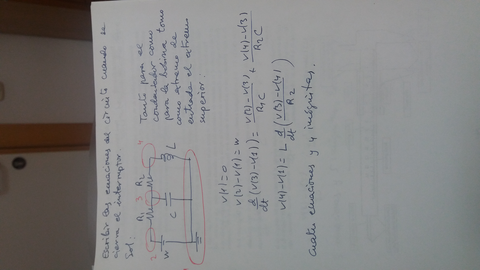 Escribir las ecuaciones del circuito cuando se
cierra el interruptor
Sol:
R1 3 R2 4
2 W C L
1
Tanto para el
condensador como
para la bobina tomo
como extremo de
entrada el extremo
superior.
V(1) = 0
V(2) - V(1) = W
d/dt (V(3) - V(1)) = (V(2) - V(3))/R1C + (V(4) - V(3))/R2C
V(4) - V(1) = L d/dt ((V(3) - V(4))/R2)
Cuatro ecuaciones y 4 incógnitas.